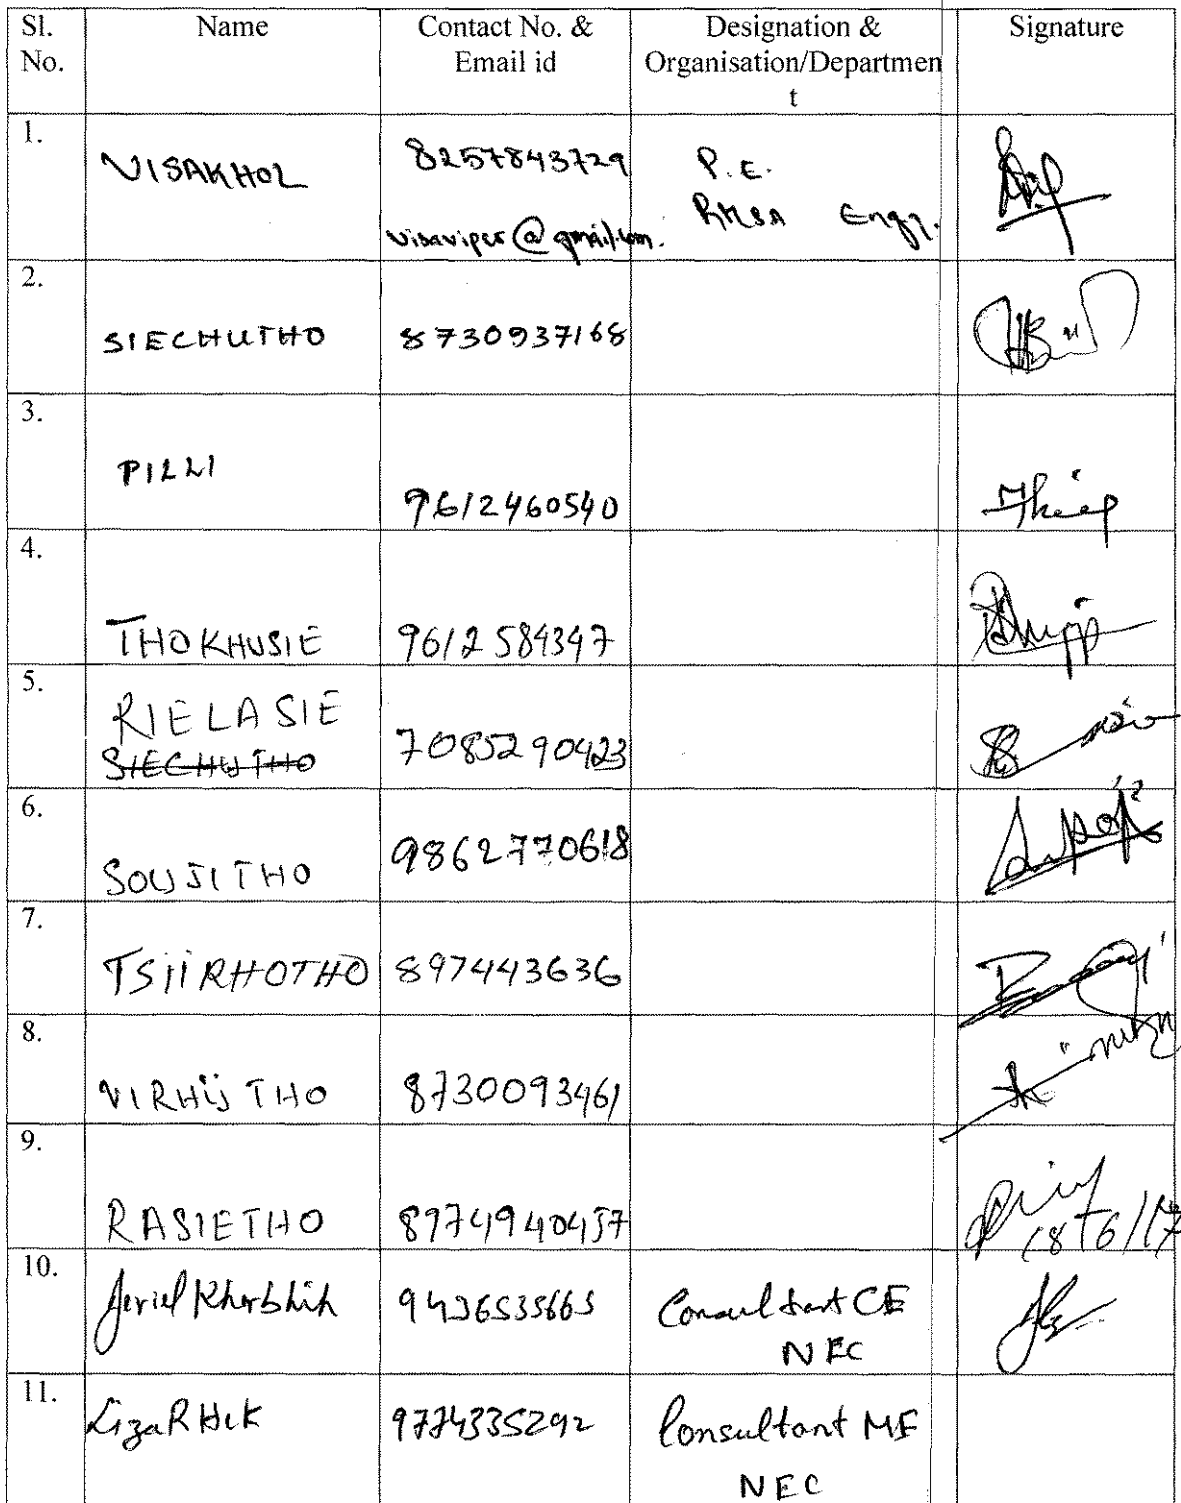 Sl. No. Name Contact No. & Email id Designation & Organisation/Department Signature
1. VISAKHOL 8257843729 P.E.
visaviper@gmail.com. RMSA Engg.
2. SIECHUTHO 8730937168
3. PILLI 9612460540
4. THOKHUSIE 9612584347
5. RIELASIE 7085290423
SIECHUTHO
6. SOUJITHO 9862770618
7. TSIIRHOTHO 897443636
8. VIRHIJTHO 8730093461
9. RASIETHO 8974940457 18/6/17
10. Jeriel Kharbhih 9436535665 Consultant CE
NEC
11. LizaRHek 9774335292 Consultant ME
NEC